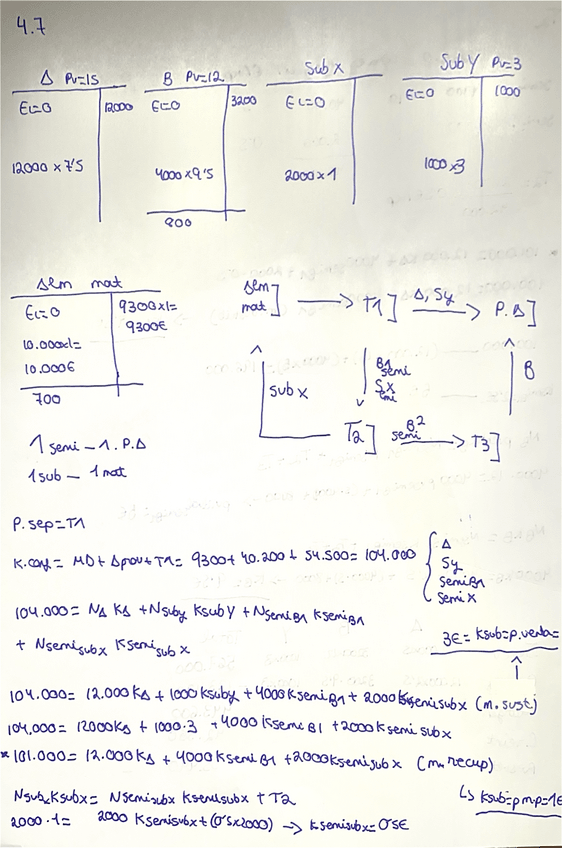 4.7
A Pv=15
B Pv=12
Sub X
Sub Y Pv=3
Ei=0 12000
Ei=0 3200
Ei=0
Ei=0 1000
12000 x 7'5
4000 x 9'5
2000 x 1
1000 x 3
800
Alm mat
Ei=0 9300x1=
9300€
10.000x1=
10.000€
700
Alm mat] → T1] A, Sy → P.A]
sub X
B1 semi
Sx semi
B
T2] B2 semi → T3]
1 semi – 1. P.A
1 sub – 1 mat
P. sep = T1
K.conj = MD + Aprov + T1 = 9300 + 40.200 + 54.500 = 104.000 {
A
Sy
semi B1
semi X
104.000 = NA KA + Nsuby Ksub Y + Nsemi B1 Ksemi B1
+ Nsemi subx Ksemi sub x
3€ = Ksub = p.venta =
↑
104.000 = 12.000 KA + 1000 Ksuby + 4000 Ksemi B1 + 2000 Ksemi subx (m. sust.)
104.000 = 12000 KA + 1000·3 + 4000 Ksemi B1 + 2000 K semi subx
* 101.000 = 12.000 KA + 4000 Ksemi B1 + 2000 Ksemi subx (m. recup)
Nsubx Ksubx = Nsemisubx Ksemisubx + T2
↳ Ksub = pmp = 1€
2000·1 = 2000 Ksemisubx + (0'5x2000) → Ksemisubx = 0'5€